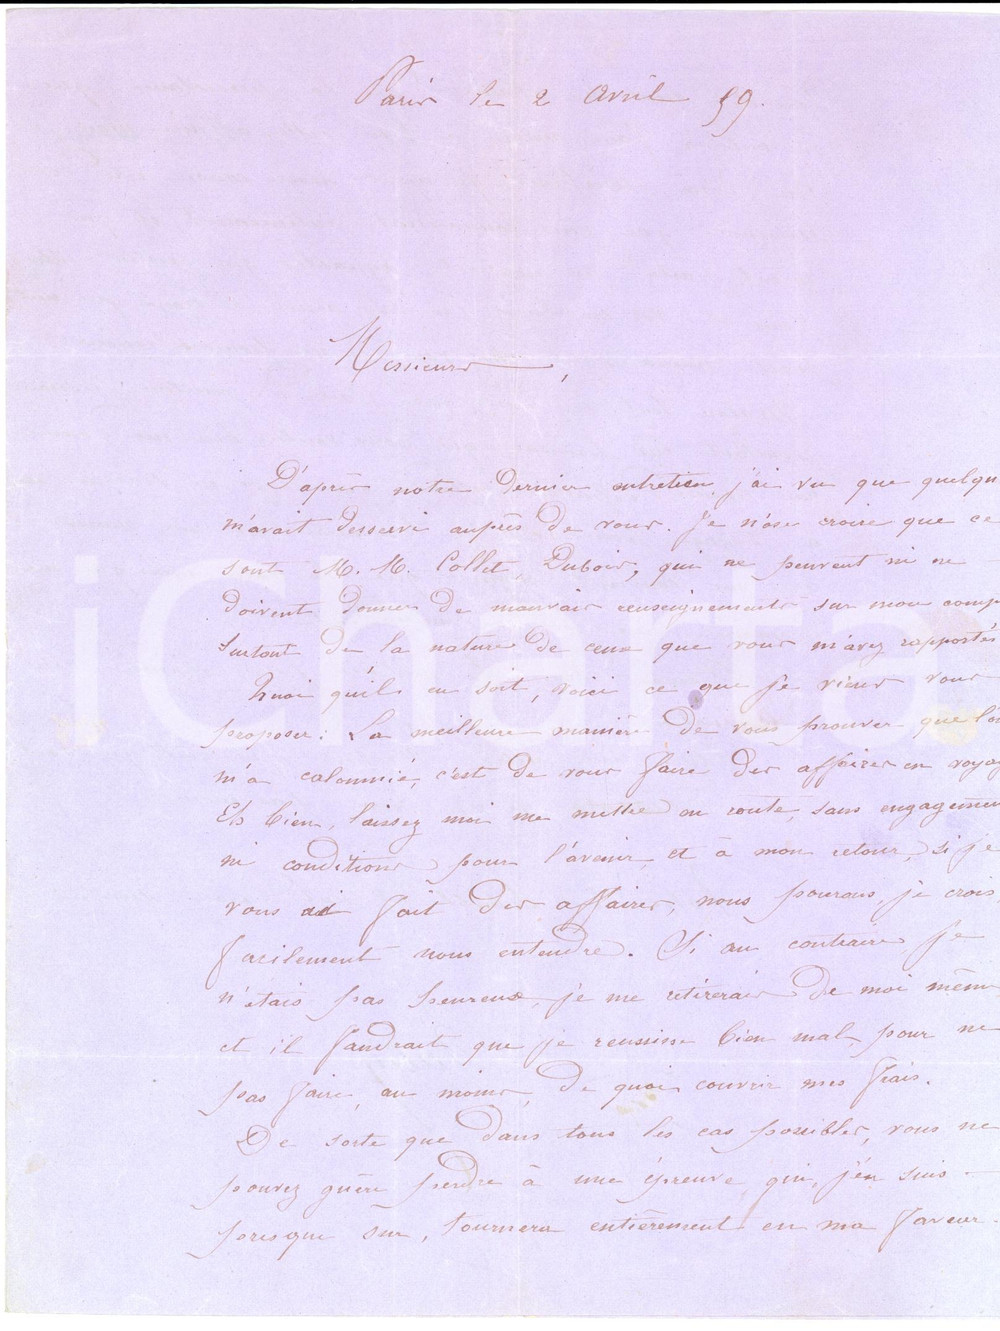 Paris le 2 Avril 59.
Messieurs,
D'après notre dernier entretien j'ai vu que quelqu
m'avait desservi auprès de vous. Je n'ose croire que ce
sont M. M. Collet, Dubois, qui ne peuvent ni ne
doivent donner de mauvais renseignements sur mon comp
surtout de la nature de ceux que vous m'avez rapportés
Quoi qu'il en soit, voici ce que je viens vous
proposer: La meilleure manière de vous prouver que l'on
m'a calomnié, c'est de vous faire des affaires en voya
Eh bien, laissez moi me mettre en route, sans engagemen
ni conditions pour l'avenir et à mon retour, si je
vous ai fait des affaires, nous pourons, je crois
facilement nous entendre. Si au contraire je
n'étais pas heureux, je me retirerais de moi mêm
et il faudrait que je reussisse bien mal, pour ne
pas faire, au moins, de quoi couvrir mes frais.
De sorte que dans tous les cas possibles, vous ne
pouvez guère perdre à une épreuve qui, j'en suis
presque sur, tournera entièrement en ma faveur.
iCharta